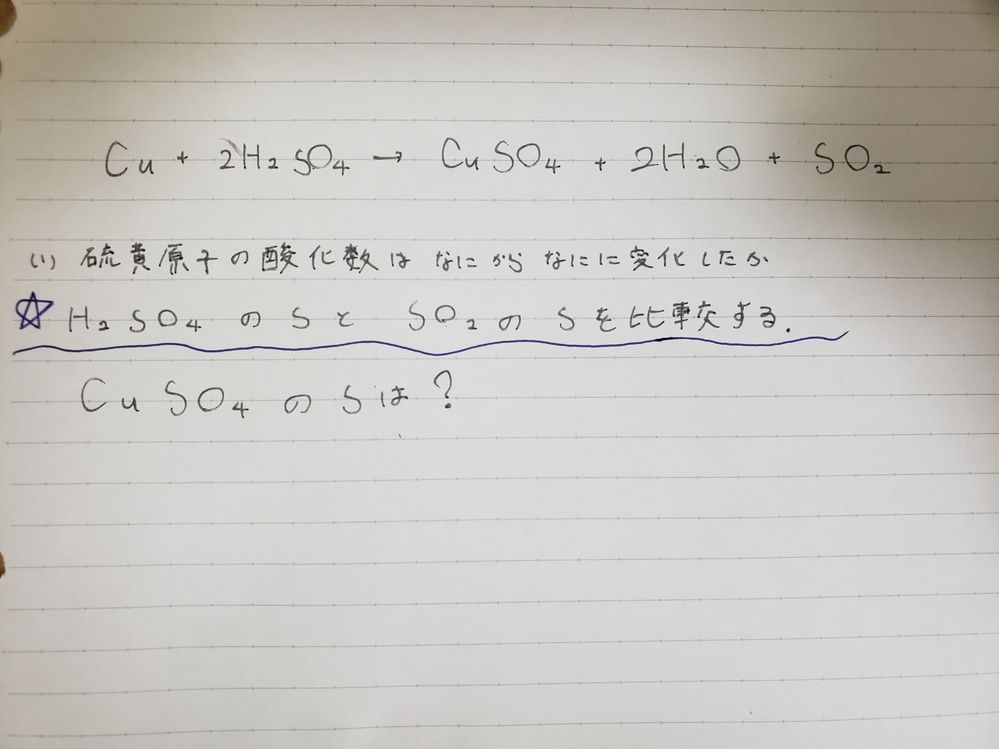 Cu + 2H₂SO₄ → CuSO₄ + 2H₂O + SO₂
(1) 硫黄原子の酸化数はなにからなにに変化したか
☆ H₂SO₄のSとSO₂のSを比較する.
CuSO₄のSは?